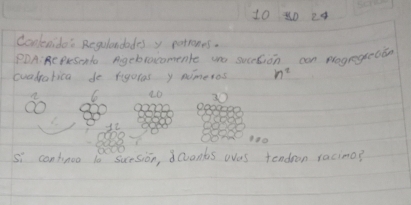 10 30 24
Contenido: Regularidades y patrones.
PDA: Representa Algebraicamente una sucesión con progresión
cuadratica de figuras y números n²
2 6 20 30
12
...
Si continua la sucesión, ¿Cuantas uvas tendran racimo?